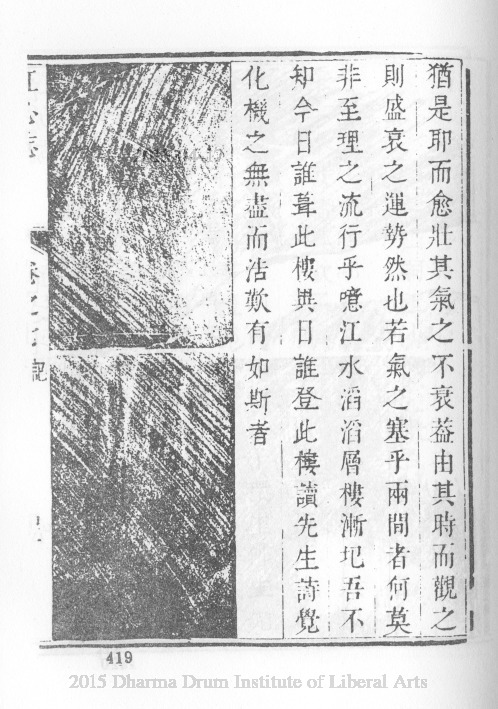 猶是耶而愈壯其氣之不衰葢由其時而觀之
則盛哀之運勢然也若氣之塞乎兩間者何莫
非至理之流行乎噫江水滔滔層樓漸圯吾不
知今日誰葺此樓異日誰登此樓讀先生詩覺
化機之無盡而浩歎有如斯者
江心志 卷之七 記
419
2015 Dharma Drum Institute of Liberal Arts